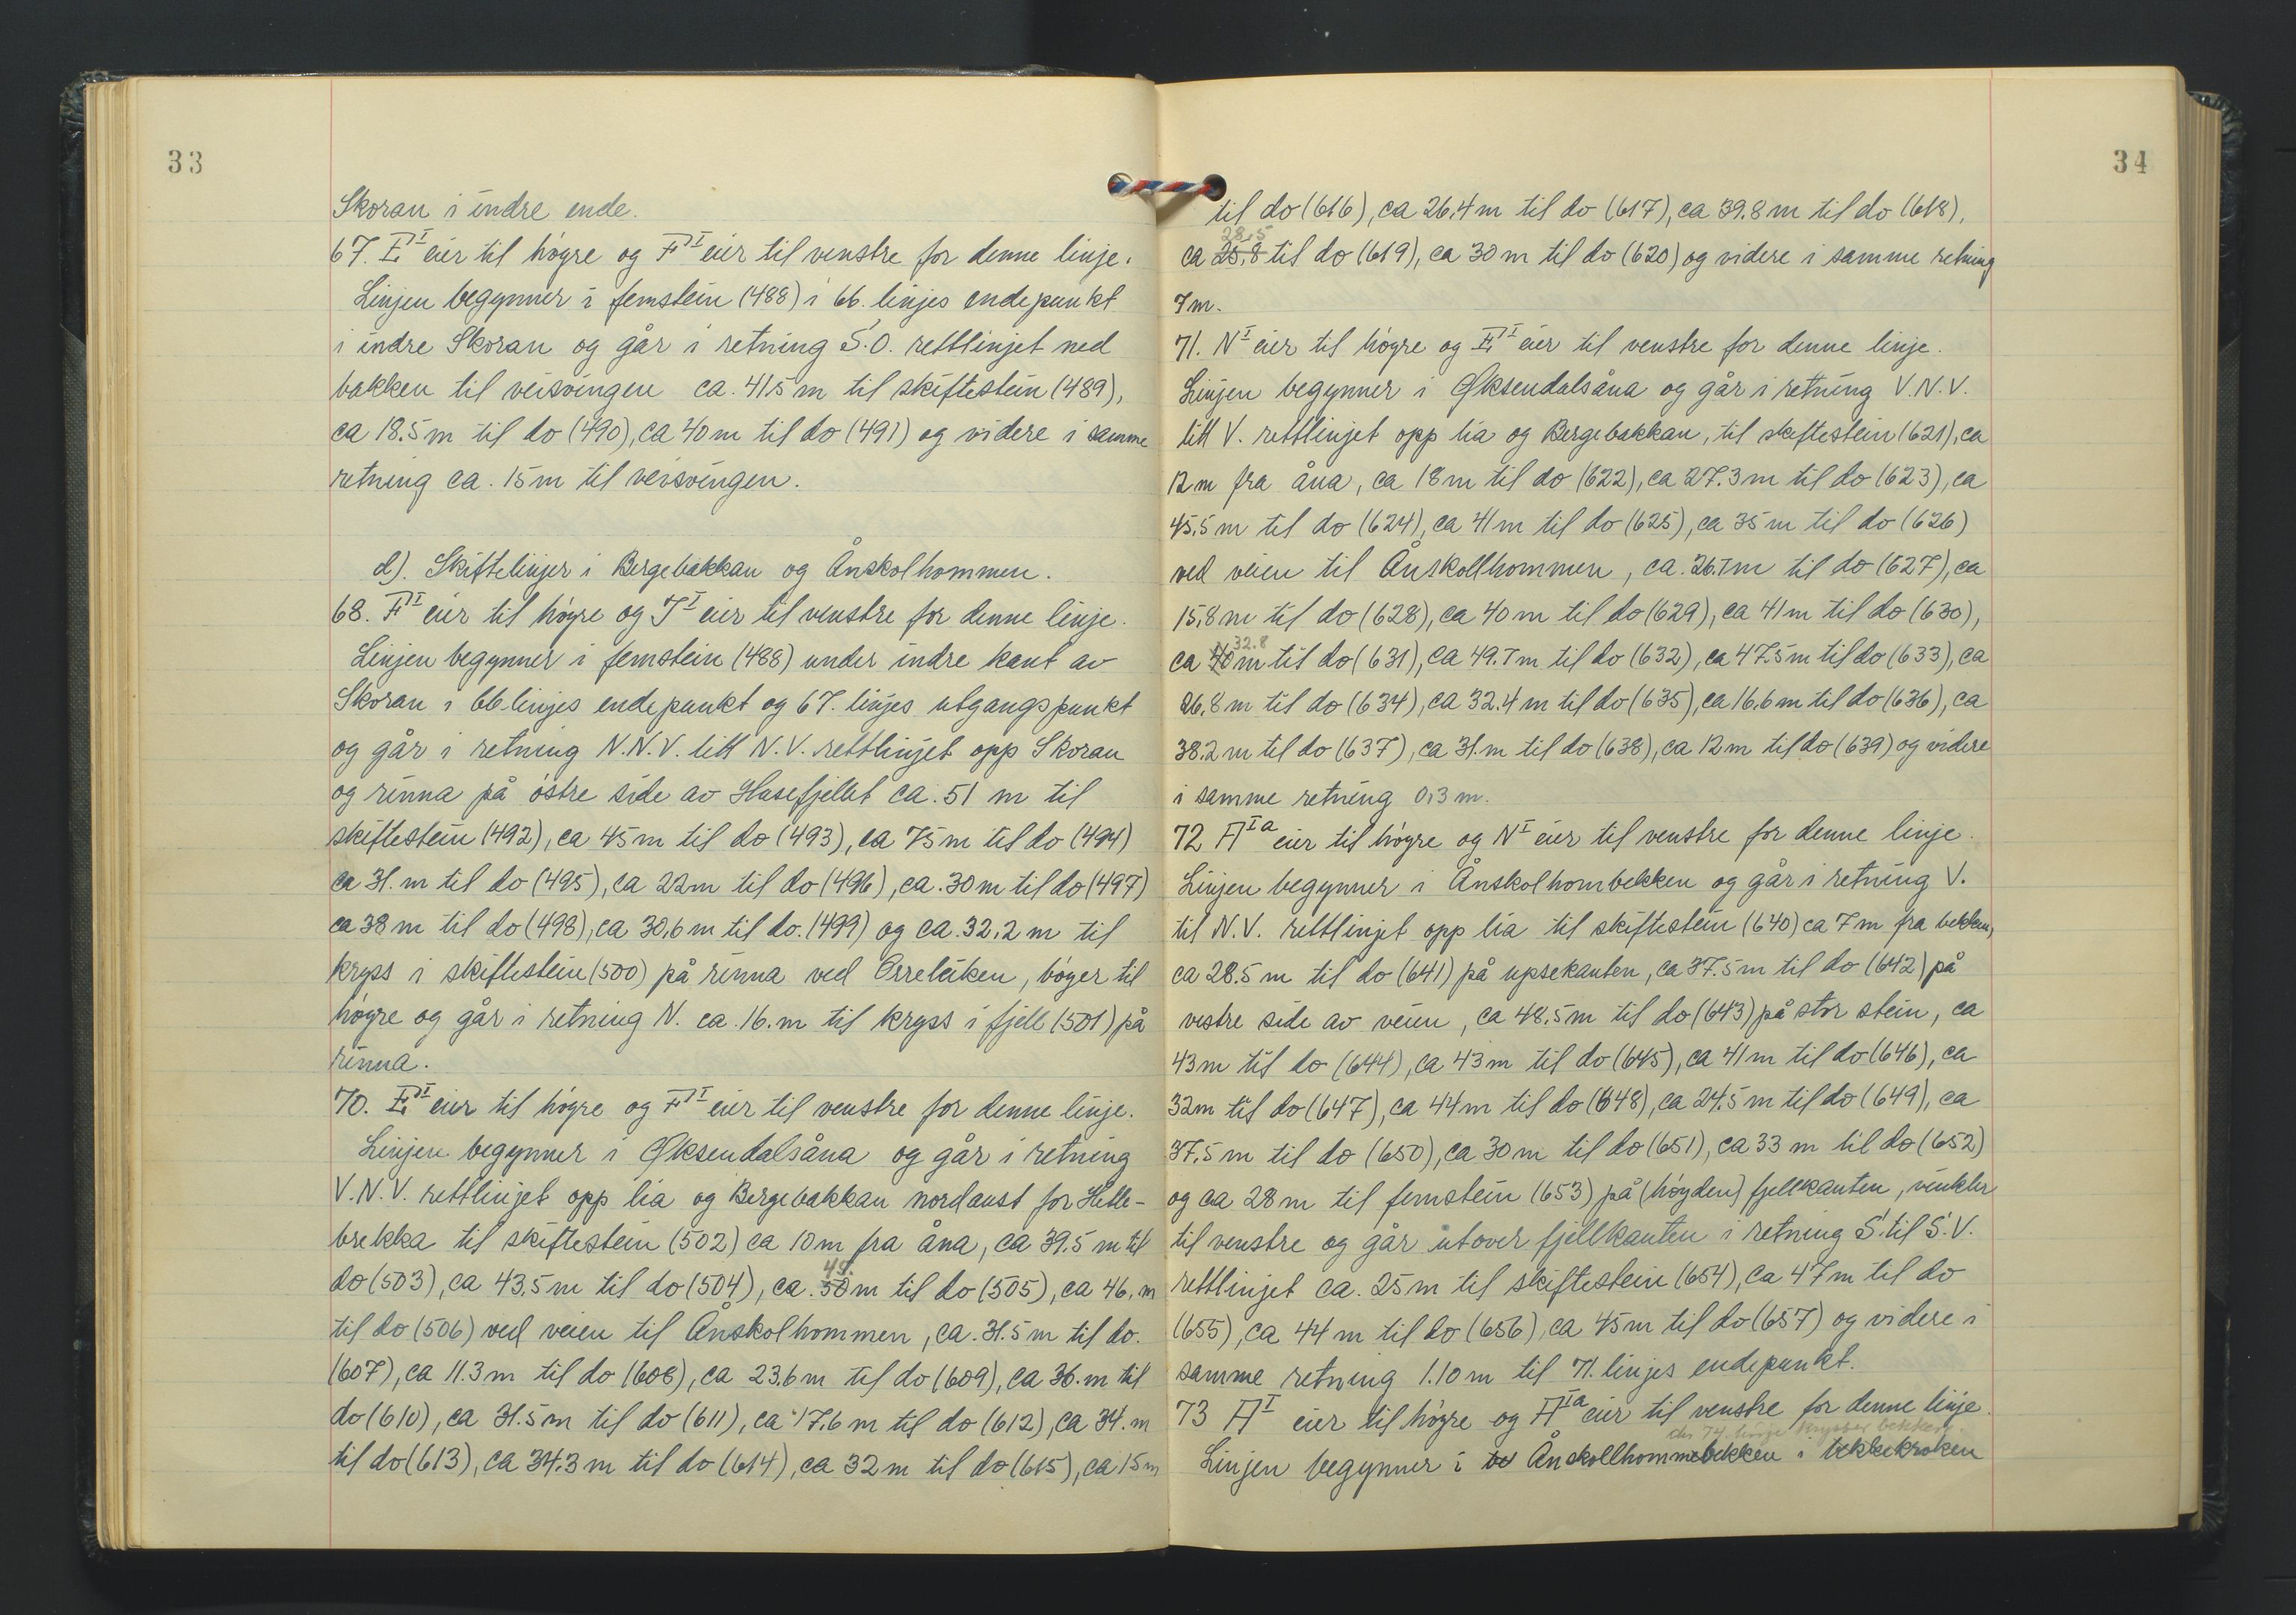 33
Skoran i indre ende.
67. E^I eier til høgre og F^I eier til venstre for denne linje.
Linjen begynner i femstein (488) i 66. linjes endepunkt
i indre Skoran og går i retning S.O. rettlinjet ned
bakken til veisvingen ca. 41.5 m til skiftestein (489),
ca 18.5 m til do (490), ca 40 m til do (491) og videre i samme
retning ca. 15 m til veisvingen.
d). Skiftelinjer i Bergebakkan og Ånskolhommen.
68. F^I eier til høgre og J^I eier til venstre for denne linje.
Linjen begynner i femstein (488) under indre kant av
Skoran i 66 linjes endepunkt og 67. linjes utgangspunkt
og går i retning N.N.V. litt N.V. rettlinjet opp Skoran
og rinna på østre side av Husefjellet ca. 51 m til
skiftestein (492), ca 45 m til do (493), ca 75 m til do (494)
ca 31. m til do (495), ca 22 m til do (496), ca. 30 m til do (497)
ca 38 m til do (498), ca 30,6 m til do. (499) og ca. 32,2 m til
kryss i skiftestein (500) på rinna ved Orreleiken, bøyer til
høgre og går i retning N. ca. 16. m til kryss i fjell (501) på
rinna.
70. E^I eier til høgre og F^I eier til venstre for denne linje.
Linjen begynner i Øksendalsåna og går i retning
V.N.V. rettlinjet opp lia og Bergebakkan nordaust for Hetle-
brekka til skiftestein (502) ca 10 m fra åna, ca 39.5 m til
do (503), ca 43.5 m til do (504), ca. 50 m til do (505), ca 46. m
til do (506) ved veien til Ånskolhommen, ca. 31.5 m til do.
(607), ca 11.3 m til do (608), ca 23.6 m til do (609), ca 36. m til
do (610), ca 31.5 m til do (611), ca 17.6 m til do (612), ca 34. m
til do (613), ca 34.3 m til do (614), ca 32 m til do (615), ca 15 m
34
til do (616), ca 26.4 m til do (617), ca 39.8 m til do (618),
28,5
ca 25,8 til do (619), ca 30 m til do (620) og videre i samme retning
7 m.
71. N^I eier til høgre og E^I eier til venstre for denne linje.
Linjen begynner i Øksendalsåna og går i retning V.N.V.
litt V. rettlinjet opp lia og Bergebakkan, til skiftestein (621), ca
12 m fra åna, ca 18 m til do (622), ca 27.3 m til do (623), ca
45.5 m til do (624), ca 41 m til do (625), ca 35 m til do (626)
ved veien til Ånskollhommen, ca. 26.7 m til do (627), ca
15.8 m til do (628), ca 40 m til do (629), ca 41 m til do (630),
32.8
ca 40 m til do (631), ca 49.7 m til do (632), ca 47.5 m til do (633), ca
26,8 m til do (634), ca 32.4 m til do (635), ca 16.6 m til do (636), ca
38.2 m til do (637), ca 31. m til do (638), ca 12 m til do (639) og videre
i samme retning 0,3 m.
72 A^Ia eier til høgre og N^I eier til venstre for denne linje.
Linjen begynner i Ånskolhombekken og går i retning V.
til N.V. rettlinjet opp lia til skiftestein (640) ca 7 m fra bekken,
ca 28.5 m til do (641) på upsekanten, ca 37.5 m til do (642) på
vestre side av veien, ca 48.5 m til do (643) på stor stein, ca
43 m til do (644), ca 43 m til do (645), ca 41 m til do (646), ca
32 m til do (647), ca 44 m til do (648), ca 24.5 m til do (649), ca
37.5 m til do (650), ca 30 m til do (651), ca 33 m til do (652)
og ca 28 m til femstein (653) på (høyden) fjellkanten, vinkler
til venstre og går utover fjellkanten i retning S. til S.V.
rettlinjet ca. 25 m til skiftestein (654), ca 47 m til do
(655), ca 44 m til do (656), ca 45 m til do (657) og videre i
samme retning 1.10 m til 71. linjes endepunkt.
73 A^I eier til høgre og A^Ia eier til venstre for denne linje.
der 74. linje krysser bekken.
Linjen begynner i be Ånskollhommebekken i bekkekroken